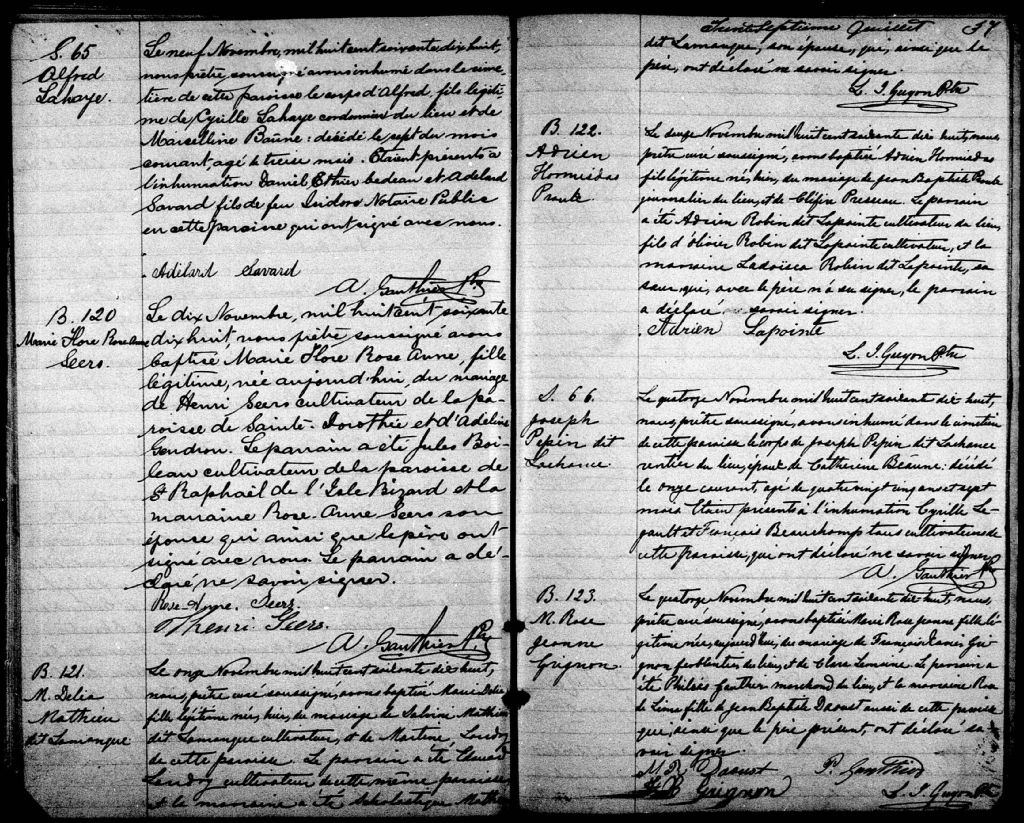 S. 65
Alfred
Lahaye.
Le neuf Novembre, mil huit cent soixante dix huit,
nous prêtre, soussigné avons inhumé dans le cime-
tière de cette paroisse le corps d'Alfred, fils légiti-
me de Cyrille Lahaye cordonnier du lieu et de
Marcelline Baûne: décédé le sept du mois
courant agé de treize mois. Etaient présents à
l'inhumation Daniel Ethier bedeau et Adelard
Savard fils de feu Isidore Notaire Public
en cette paroisse qui ont signé avec nous.
Adélard Savard
A. Gauthier Ptr
B. 120
Marie Flore Rose Anne
Seers.
Le dix Novembre, mil huit cent, soixante
dix huit, nous prêtre soussigné avons
baptisé Marie Flore Rose Anne, fille
légitime, née aujourd'hui, du mariage
de Henri Seers cultivateur de la pa-
roisse de Sainte-Dorothée et d'Adeline
Gendron. Le parrain a été Jules Boi-
leau cultivateur de la paroisse de
St Raphaël de l'Isle Bizard et la
marraine Rose-Anne Seers son
épouse qui ainsi que le père ont
signé avec nous. Le parrain a dé-
claré ne savoir signer.
Rose-Anne. Seers.
Henri Seers.
A. Gauthier Ptr
B. 121.
M. Delia
Mathieu
dit Lamangue
Le onze Novembre mil huit cent soixante dix huit,
nous, prêtre curé soussigné, avons baptisé Marie Delia
fille légitime née, hier, du mariage de Mathieu
dit Lamangue cultivateur, et de Martine Landry
de cette paroisse. Le parrain a été Edouard
Landry cultivateur de cette même paroisse
et la marraine a été Scholastique Mathieu
Trente Septieme feuillet 37
dit Lamangue, son épouse, qui, ainsi que le
père, ont déclaré ne savoir signer.
L. J. Guyon Ptre
B. 122.
Adrien
Hormisdas
Proulx
Le douze Novembre mil huit cent soixante dix huit, nous
prêtre curé soussigné, avons baptisé Adrien Hormisdas
fils légitime né, hier, du mariage de Jean Baptiste Proulx
journalier du lieu, et de Presseau. Le parrain
a été Adrien Robin dit Lapointe cultivateur du lieu,
fils d'olivier Robin dit Lapointe cultivateur, et la
marraine Robin dit Lapointe, sa
sœur, qui, avec le père n'a su signer, le parrain
a déclaré savoir signer.
Adrien Lapointe
L. J. Guyon Ptre
S. 66.
Joseph
Pepin dit
Lachance
Le quatorze Novembre mil huit cent soixante dix huit,
nous, prêtre soussigné, avons inhumé dans le cimetière
de cette paroisse le corps de Joseph Pepin dit Lachance
rentier du lieu, époux de Catherine Beaune: décédé
le onze courant, agé de quatre vingt cinq ans et sept
mois Etaient présents à l'inhumation Cyrille Le-
gault et François Beauchamp tous cultivateurs de
cette paroisse, qui ont déclaré ne savoir signer
A. Gauthier Ptr
B. 123.
M. Rose
Jeanne
Grignon.
Le quatorze Novembre mil huit cent soixante dix huit, nous,
prêtre curé soussigné, avons baptisé Marie Rose Jeanne fille lé-
gitime née, aujourd'hui, du mariage de François Gri-
gnon ferblantier du lieu, et de Clara Lemaire. Le parrain a
été Gauthier marchand du lieu, et la marraine Rose
de Lima fille de Jean Baptiste Daoust aussi de cette paroisse
qui, ainsi que le père présent, ont déclaré sa-
voir signer.
M. R. Daoust P. Gauthier
Grignon L. J. Guyon Ptre